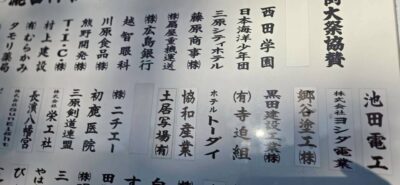 大祭協賛
西田学園
日本海洋少年団
三原シティホテル
藤原商事㈱
㈱扇屋手焼運送
㈱広島銀行
越智眼科
川原食品㈱
熊野開発㈱
T.I.C.㈱
村上建設
㈲むらかみ
タモリ薬局
池田電工
株式会社ヨシダ電業
郷谷塗工㈱
黒田建設工業㈱
㈲寺迫組
ホテルトーダイ
協和産業
土居写場㈲
㈱ニチエー
初鹿医院
三原剣道連盟
株式会社栄工社
長濱八幡宮